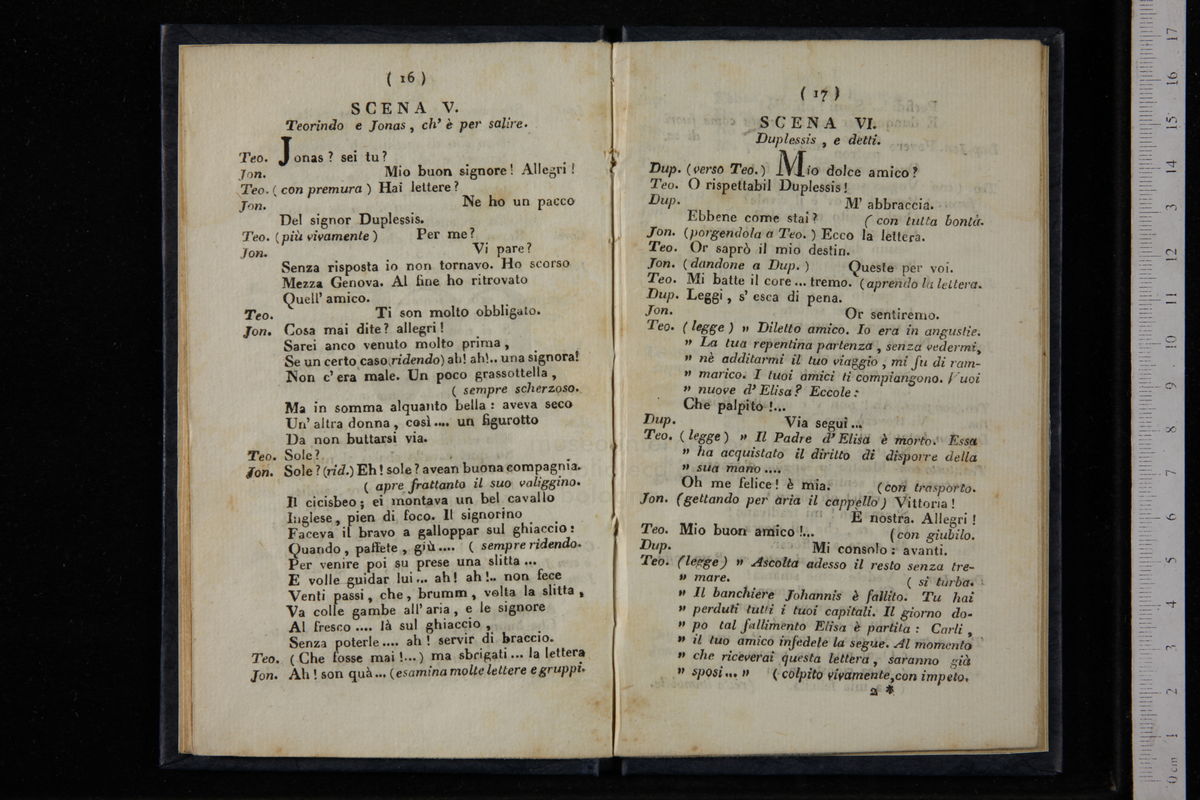 ( 16 )
SCENA V.
Teorindo e Jonas, ch' è per salire.
Teo. Jonas? sei tu?
Jon. Mio buon signore! Allegri!
Teo. (con premura) Hai lettere?
Jon. Ne ho un pacco
Del signor Duplessis.
Teo. (più vivamente) Per me?
Jon. Vi pare?
Senza risposta io non tornavo. Ho scorso
Mezza Genova. Al fine ho ritrovato
Quell' amico.
Teo. Ti son molto obbligato.
Jon. Cosa mai dite? allegri!
Sarei anco venuto molto prima,
Se un certo caso (ridendo) ah! ah!.. una signora!
Non c' era male. Un poco grassottella,
( sempre scherzoso.
Ma in somma alquanto bella: aveva seco
Un' altra donna, così.... un figurotto
Da non buttarsi via.
Teo. Sole?
Jon. Sole? (rid.) Eh! sole? avean buona compagnia.
( apre frattanto il suo valiggino.
Il cicisbeo; ei montava un bel cavallo
Inglese, pien di foco. Il signorino
Faceva il bravo a galloppar sul ghiaccio:
Quando, paffete, giù.... ( sempre ridendo.
Per venire poi su prese una slitta...
E volle guidar lui... ah! ah!.. non fece
Venti passi, che, brumm, volta la slitta,
Va colle gambe all' aria, e le signore
Al fresco.... là sul ghiaccio,
Senza poterle.... ah! servir di braccio.
Teo. (Che fosse mai!...) ma sbrigati... la lettera
Jon. Ah! son quà... (esamina molte lettere e gruppi.
( 17 )
SCENA VI.
Duplessis, e detti.
Dup. (verso Teo.) Mio dolce amico?
Teo. O rispettabil Duplessis!
Dup. M' abbraccia.
Ebbene come stai? ( con tutta bontà.
Jon. (porgendola a Teo.) Ecco la lettera.
Teo. Or saprò il mio destin.
Jon. (dandone a Dup.) Queste per voi.
Teo. Mi batte il core... tremo. (aprendo la lettera.
Dup. Leggi, s' esca di pena.
Jon. Or sentiremo.
Teo. (legge) „ Diletto amico. Io era in angustie.
„ La tua repentina partenza, senza vedermi,
„ nè additarmi il tuo viaggio, mi fu di ram-
„ marico. I tuoi amici ti compiangono. Vuoi
„ nuove d' Elisa? Eccole:
Che palpito!...
Dup. Via segui...
Teo. (legge) „ Il Padre d' Elisa è morto. Essa
„ ha acquistato il diritto di disporre della
„ sua mano....
Oh me felice! è mia. (con trasporto.
Jon. (gettando per aria il cappello) Vittoria!
E nostra. Allegri!
Teo. Mio buon amico!... (con giubilo.
Dup. Mi consolo: avanti.
Teo. (legge) „ Ascolta adesso il resto senza tre-
„ mare. ( si turba.
„ Il banchiere Johannis è fallito. Tu hai
„ perduti tutti i tuoi capitali. Il giorno do-
„ po tal fallimento Elisa è partita: Carli,
„ il tuo amico infedele la segue. Al momento
„ che riceverai questa lettera, saranno già
„ sposi... „ ( colpito vivamente, con impeto.
2 *
0 cm 1 2 3 4 5 6 7 8 9 10 11 12 13 14 15 16 17